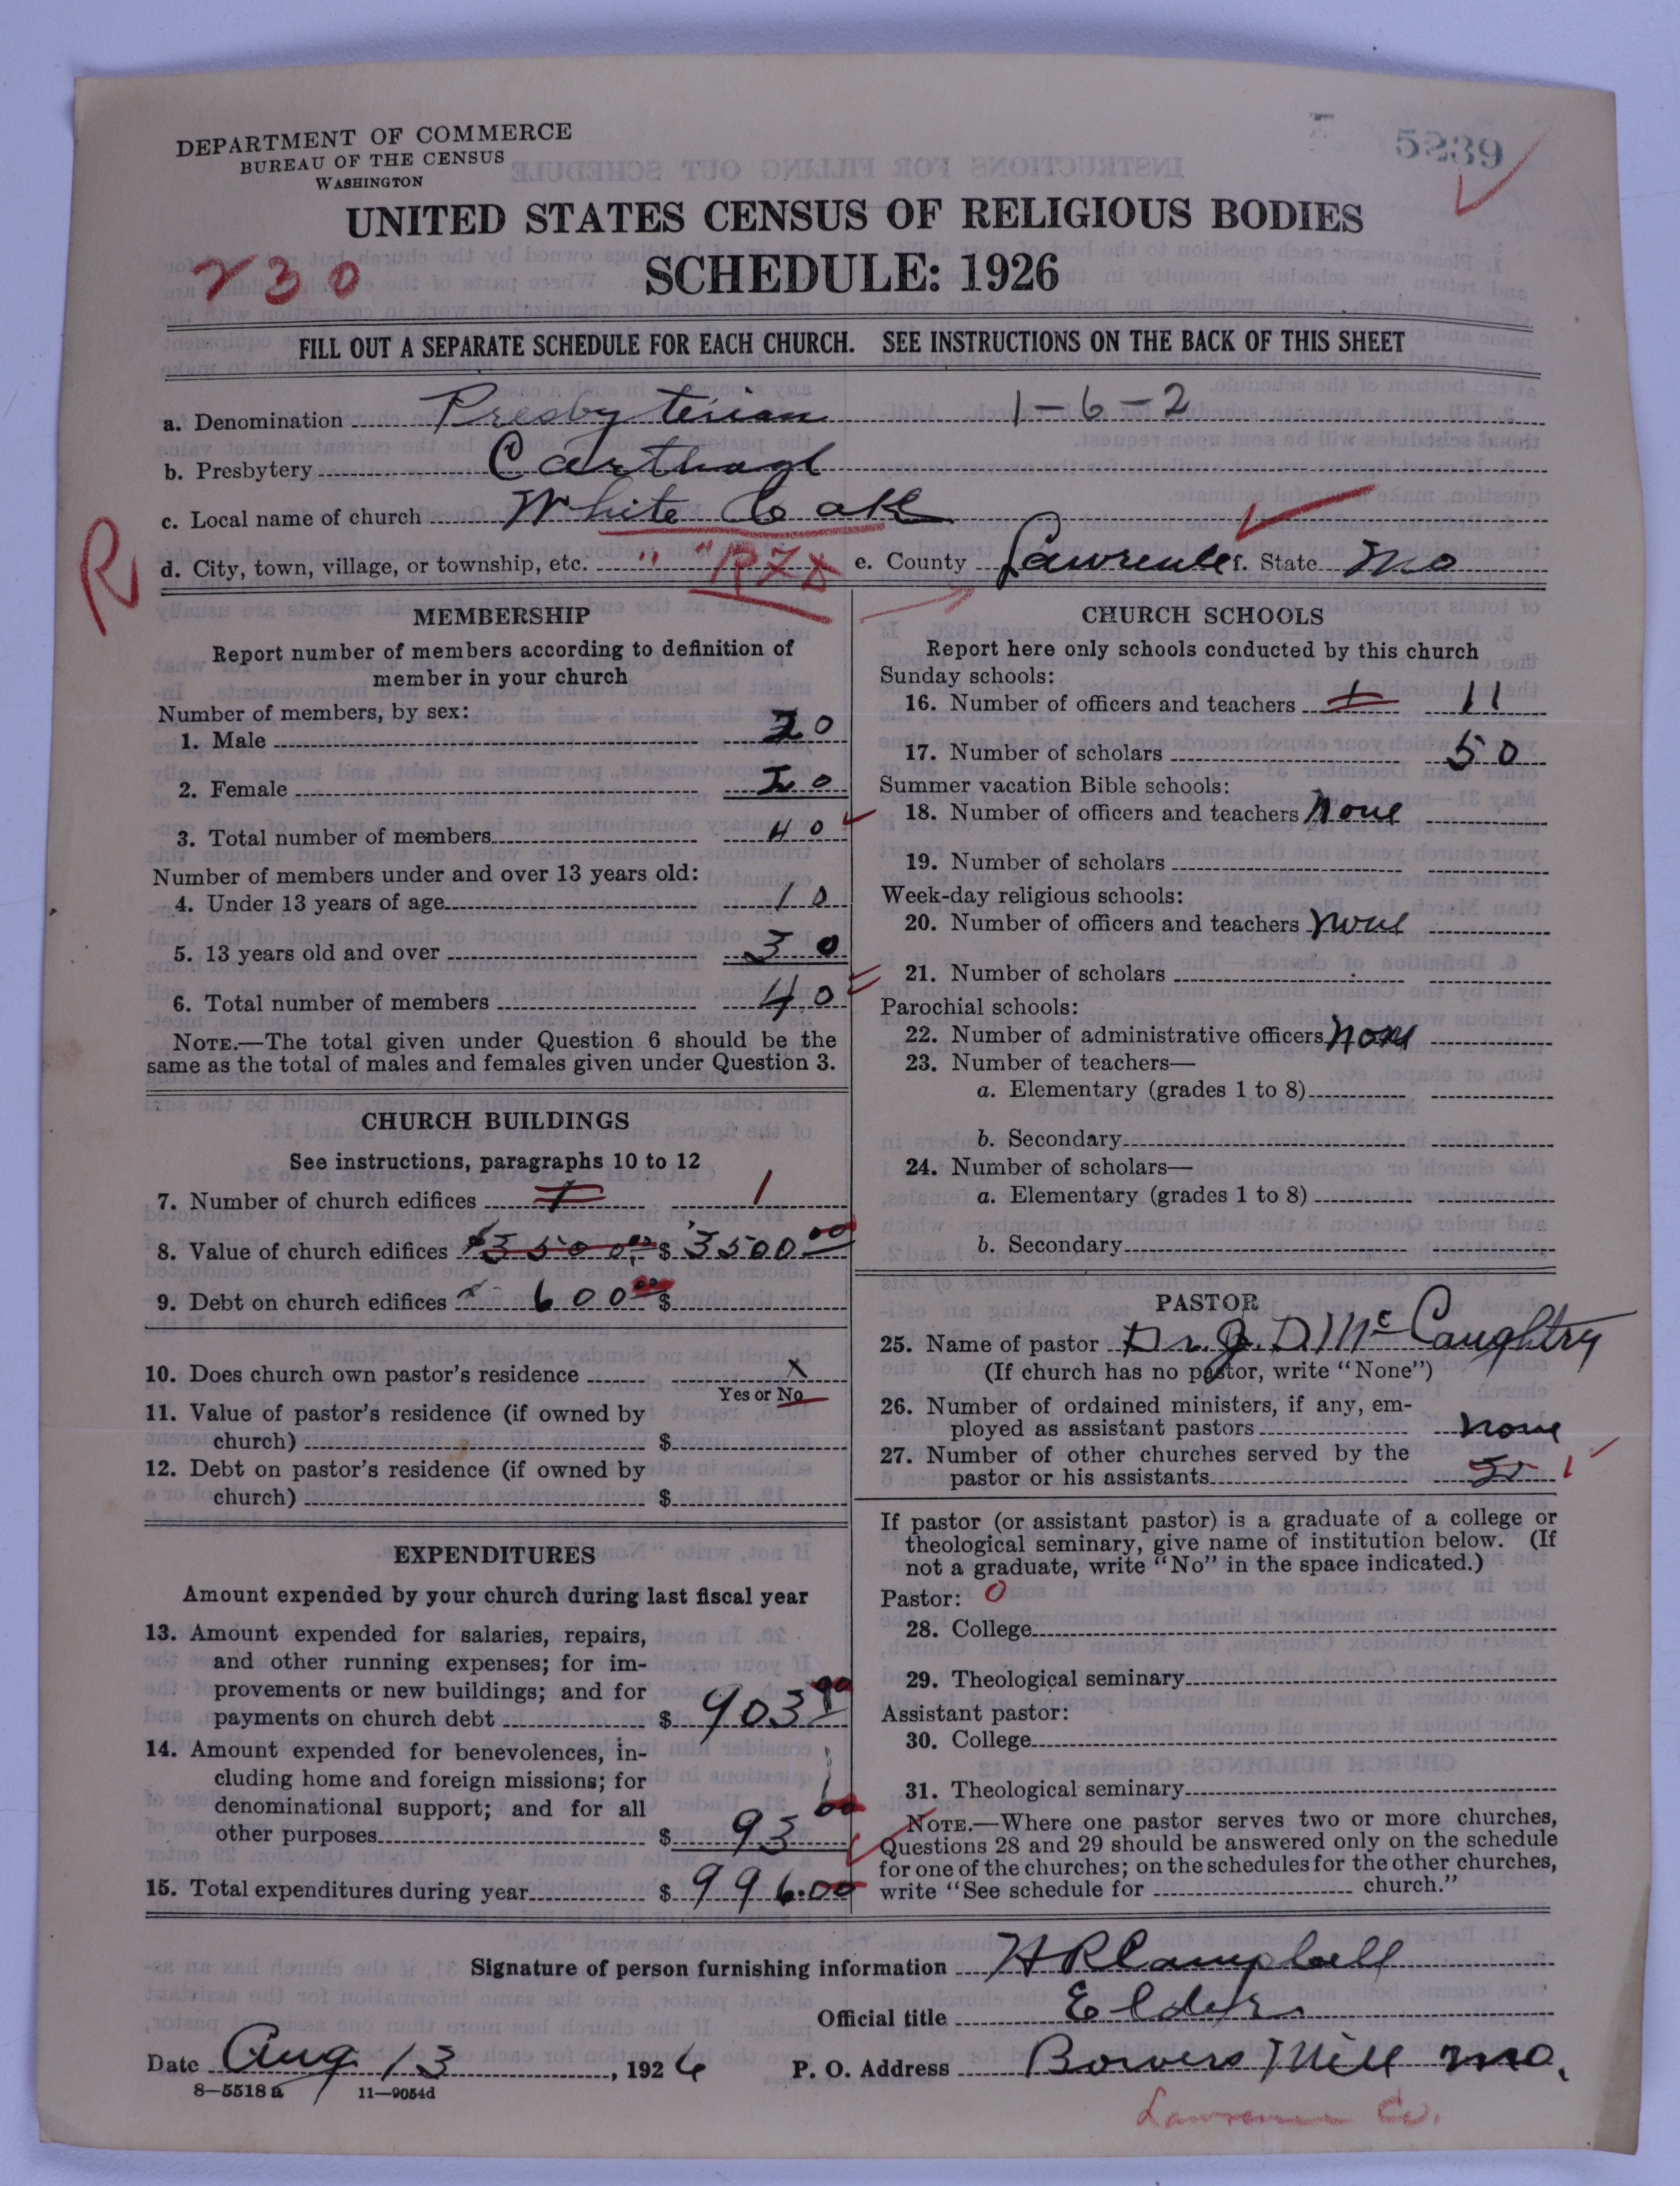 DEPARTMENT OF COMMERCE
BUREAU OF THE CENSUS
WASHINGTON
5239
UNITED STATES CENSUS OF RELIGIOUS BODIES
SCHEDULE: 1926
230
FILL OUT A SEPARATE SCHEDULE FOR EACH CHURCH. SEE INSTRUCTIONS ON THE BACK OF THIS SHEET
a. Denomination Presbyterian 1-6-2
b. Presbytery Carthage
c. Local name of church White Oak
R
d. City, town, village, or township, etc. " " e. County Lawrence f. State Mo
MEMBERSHIP
Report number of members according to definition of
member in your church
Number of members, by sex:
1. Male 20
2. Female 20
3. Total number of members 40
Number of members under and over 13 years old:
4. Under 13 years of age 10
5. 13 years old and over 30
6. Total number of members 40
NOTE.—The total given under Question 6 should be the
same as the total of males and females given under Question 3.
CHURCH BUILDINGS
See instructions, paragraphs 10 to 12
7. Number of church edifices 1 1
8. Value of church edifices $3500.00 $ 3500.00
9. Debt on church edifices 600.00 $
10. Does church own pastor's residence X
Yes or No
11. Value of pastor's residence (if owned by
church) $
12. Debt on pastor's residence (if owned by
church) $
EXPENDITURES
Amount expended by your church during last fiscal year
13. Amount expended for salaries, repairs,
and other running expenses; for im-
provements or new buildings; and for
payments on church debt $ 903.00
14. Amount expended for benevolences, in-
cluding home and foreign missions; for
denominational support; and for all
other purposes $ 93.00
15. Total expenditures during year $ 996.00
CHURCH SCHOOLS
Report here only schools conducted by this church
Sunday schools:
16. Number of officers and teachers 1 11
17. Number of scholars 50
Summer vacation Bible schools:
18. Number of officers and teachers None
19. Number of scholars
Week-day religious schools:
20. Number of officers and teachers None
21. Number of scholars
Parochial schools:
22. Number of administrative officers None
23. Number of teachers—
a. Elementary (grades 1 to 8)
b. Secondary
24. Number of scholars—
a. Elementary (grades 1 to 8)
b. Secondary
PASTOR
25. Name of pastor Dr. J. D. McCaughtry
(If church has no pastor, write "None")
26. Number of ordained ministers, if any, em-
ployed as assistant pastors None
27. Number of other churches served by the
pastor or his assistants
If pastor (or assistant pastor) is a graduate of a college or
theological seminary, give name of institution below. (If
not a graduate, write "No" in the space indicated.)
Pastor: 0
28. College
29. Theological seminary
Assistant pastor:
30. College
31. Theological seminary
NOTE.—Where one pastor serves two or more churches,
Questions 28 and 29 should be answered only on the schedule
for one of the churches; on the schedules for the other churches,
write "See schedule for church."
Signature of person furnishing information H R Campbell
Official title Elder
Date Aug 13, 1926 P. O. Address Bowers Mill Mo.
8—5518 a 11—9054d
Lawrence Co.